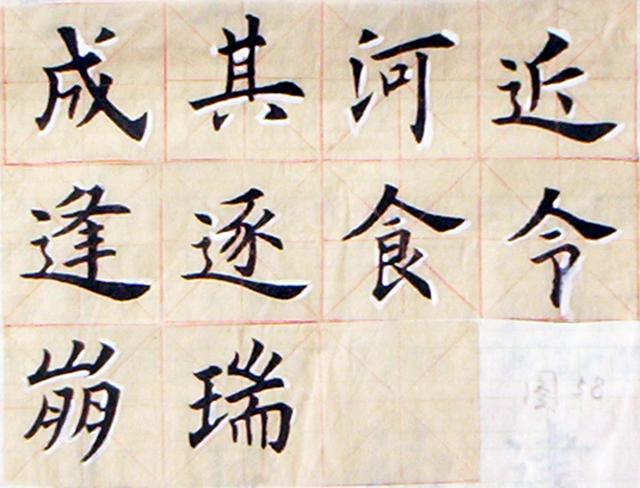 成其河近
逢逐食令
崩瑞